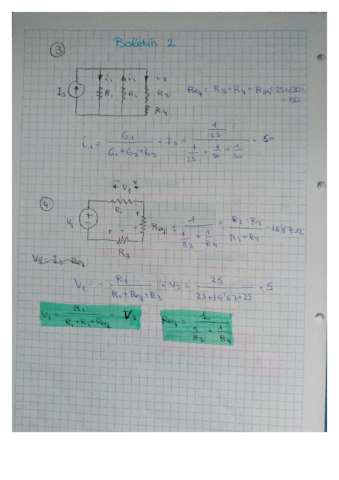 Boletín 2
③
Is i₁ R₁ i₂ R₂ i₃ R₃ R₄
Req = R₃ + R₄ = 25+25
= 50
i₁ = G₁ / (G₁ + G₂ + G₃) · Is = (1/25) / (1/25 + 1/50 + 1/50) · 5
④
- V₁ +
Vs R₁ Req R₃
= 1 / (1/R₂ + 1/R₄) = R₂ · R₄ / (R₂ + R₄) = 16'67 Ω
V₁ = - R₁ / (R₁ + Req + R₃) · Vs = 25 / (25 + 16'67 + 25) · 5
V₁ = R₁ / (R₁ + R₃ + Req) Vs
Req = 1 / (1/R₂ + 1/R₄)